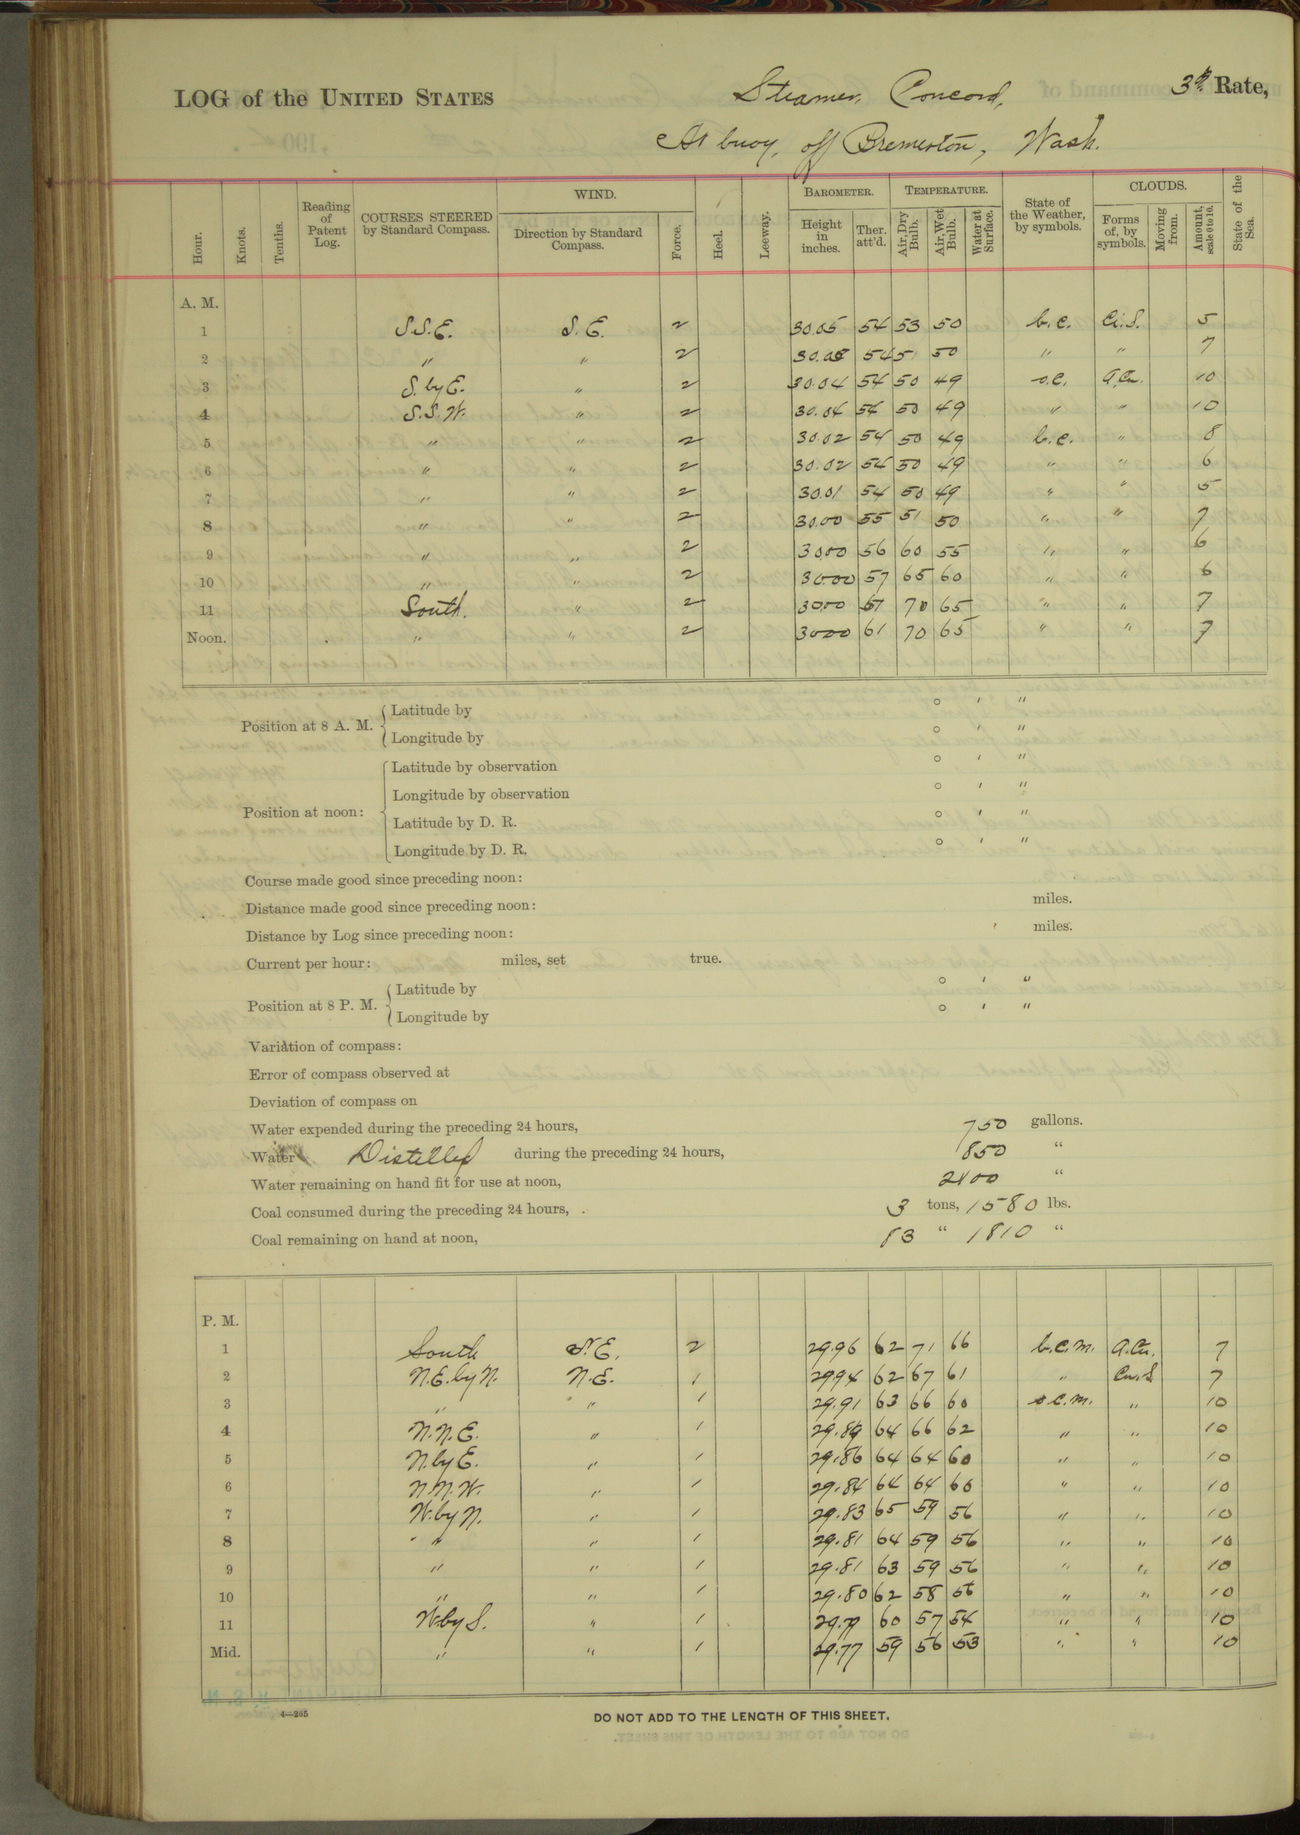 LOG of the UNITED STATES Steamer, Concord, 3rd Rate,
At buoy, off Bremerton, Wash.
Hour. Knots. Tenths. Reading of Patent Log. COURSES STEERED by Standard Compass. WIND. Direction by Standard Compass. Force. Heel. Leeway. BAROMETER. Height in inches. Ther. att'd. TEMPERATURE. Air, Dry Bulb. Air, Wet Bulb. Water at Surface. State of the Weather, by symbols. CLOUDS. Forms of, by symbols. Moving from. Amount, scale 0 to 10. State of the Sea.
A. M.
1 S.S.E. S.E. 2 30.05 54 53 50 b.c. Ci.S. 5
2 " " 2 30.05 54 51 50 " " 7
3 S. by E. " 2 30.04 54 50 49 o.c. A.Cu. 10
4 S.S.W. " 2 30.04 54 50 49 " " 10
5 " " 2 30.02 54 50 49 b.c. " 8
6 " " 2 30.02 54 50 49 " " 6
7 " " 2 30.01 54 50 49 " " 5
8 " " 2 30.00 55 51 50 " " 7
9 " " 2 30.00 56 60 55 " " 6
10 " " 2 30.00 57 65 60 " " 6
11 South. " 2 30.00 61 70 65 " " 7
Noon. " " 2 30.00 61 70 65 " " 7
Position at 8 A. M. { Latitude by ° ' "
Longitude by ° ' "
Position at noon: { Latitude by observation ° ' "
Longitude by observation ° ' "
Latitude by D. R. ° ' "
Longitude by D. R. ° ' "
Course made good since preceding noon:
Distance made good since preceding noon: miles.
Distance by Log since preceding noon: miles.
Current per hour: miles, set true.
Position at 8 P. M. { Latitude by ° ' "
Longitude by ° ' "
Variation of compass:
Error of compass observed at
Deviation of compass on
Water expended during the preceding 24 hours, 750 gallons.
Water Distilled during the preceding 24 hours, 850 "
Water remaining on hand fit for use at noon, 2400 "
Coal consumed during the preceding 24 hours, 3 tons, 1580 lbs.
Coal remaining on hand at noon, 83 " 1810 "
P. M.
1 South N.E. 2 29.96 62 71 66 b.c.m. A.Cu. 7
2 N.E. by N. N.E. 1 29.94 62 67 61 " Cu.S. 7
3 " " 1 29.91 63 66 60 o.c.m. " 10
4 N.N.E. " 1 29.89 64 66 62 " " 10
5 N. by E. " 1 29.86 64 64 60 " " 10
6 N.N.W. " 1 29.84 64 64 60 " " 10
7 W. by N. " 1 29.83 65 59 56 " " 10
8 " " 1 29.81 64 59 56 " " 10
9 " " 1 29.81 63 59 56 " " 10
10 " " 1 29.80 62 58 56 " " 10
11 W. by S. " 1 29.79 60 57 54 " " 10
Mid. " " 1 29.77 59 56 53 " " 10
4—265
DO NOT ADD TO THE LENGTH OF THIS SHEET.